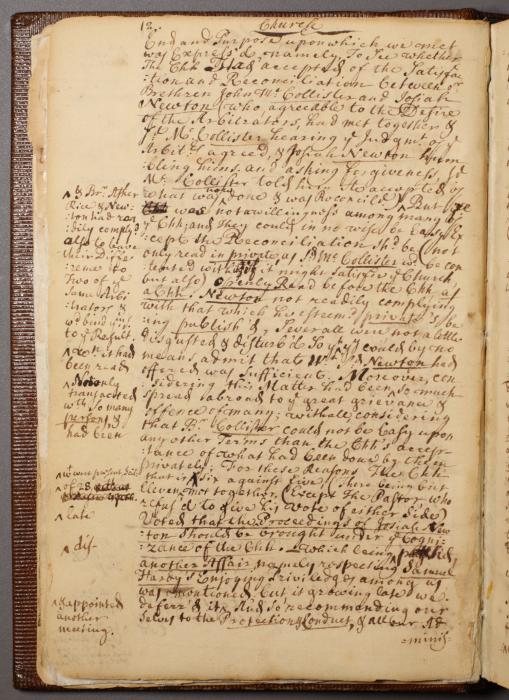 12.
Church
End and Purpose upon which we met
was Express'd, namely, To see whether
The Chh accepted of the Satisfac
:tion and Reconciliation between or
Brethren John McCollister and Josiah
Newton (who agreable to the Desire
of the Arbitrators, had met together &
McCollister hearing ye Judgmt. of ye
Arbitrs agreed, & Josiah Newton hum
:bling himself and asking forgiveness,
McCollister told him He accepted of
what was now done & was Reconcil'd) But
was not a willingness among many of
ye Chh, and They could in no wise be Easy Ex
:cept the Reconciliation shd be (not
only read in private as Br McCollister wd be con
:tented with if it might satisfie ye Church,
but also) openly Read before the Chh as
a Chh. Newton not readily complying
with that which he esteem'd private's be
:ing publish'd, Severall were not a little
disgusted & disturb'd So yt yy could by no
means admit that wt Newton had
offered was Sufficient. Moreover, con
:sidering this Matter had been So much
Spread abroad to ye great grievance &
offence of many; withall considering
that Br. Collister could not be Easy upon
any other Terms than the Chh's accep
:tance of what had been done by them
privately; For these Reasons The Chh
that is Six against Five (There being but
Eleven met together, Except The Pastor who
refus'd to give his Vote of either Side)
Voted that the Proceedings of Josiah New
:ton Should be brought under ye Cogni
:zance of the Chh. Which being
another Affair, namely respecting Samuel
Hardy's Enjoying Priviledges among us
was mentioned, but it growing late we
deferr'd it, And So recommending our
Selves to the Protection & Conduct, & all our Ad
=minis=
^ & Br. Asher
Rice & New-
:ton had rea
:dily comply'd
also to leave
their Diffe
:rence to
Two of ye
Same Arbi
:trators &
wd bind ymselves
to ye Result
^ wt had
been read
Not only
transacted
with So many
persons &
had been
^ wr present
of 28
^ late
^ dis-
^ & appointed
another
meeting.